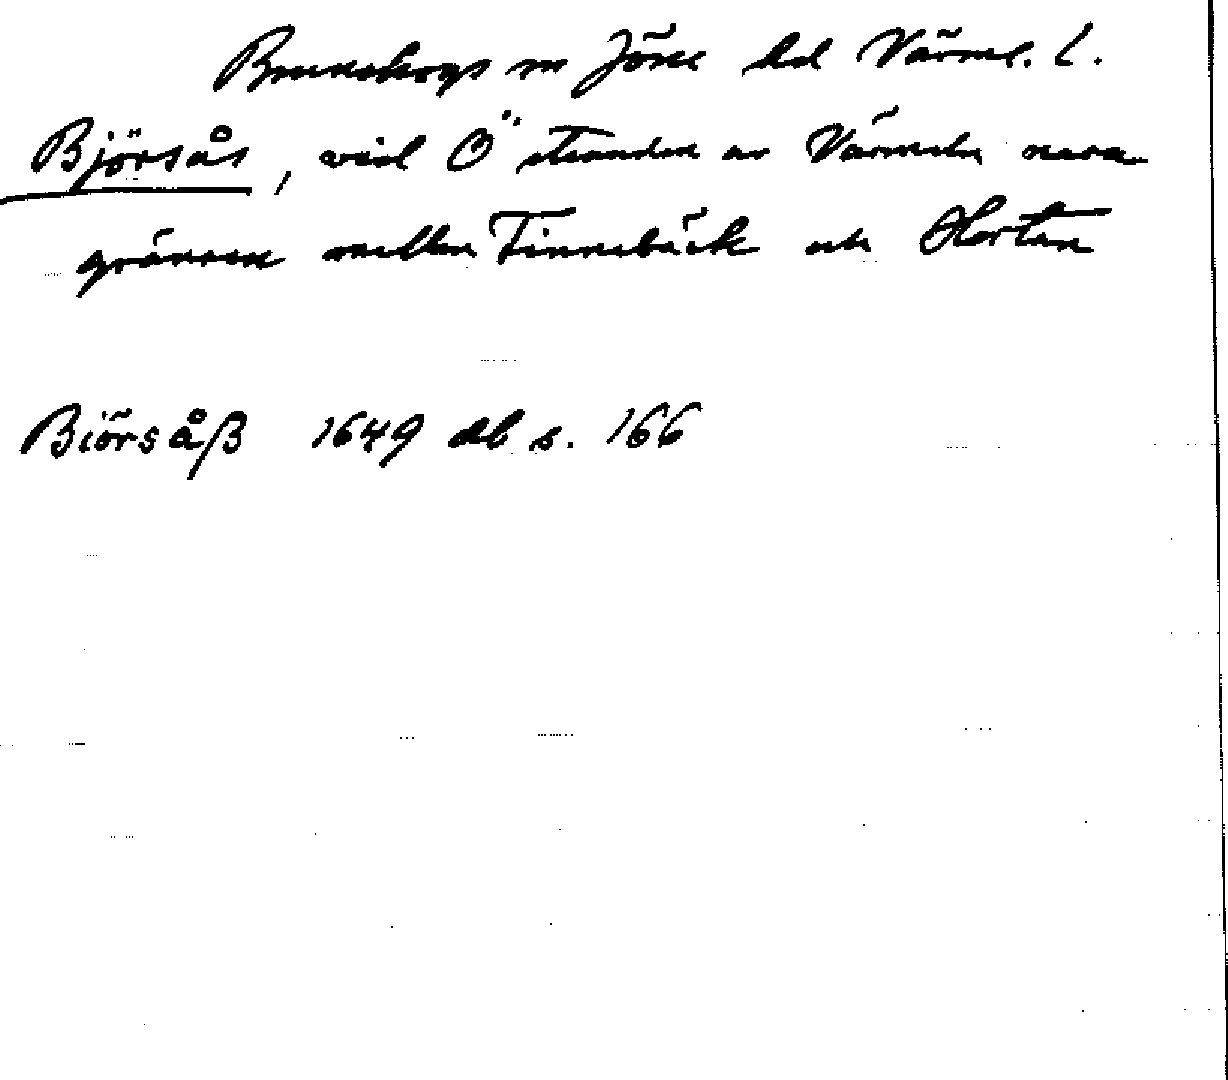 Brunskogs sn Jösse hd Värml. l.
Björsås, vid Ö stranden av Värmeln nära
gränsen mellan Finnebäck och Hertan
Biörsåß 1649 db s. 166